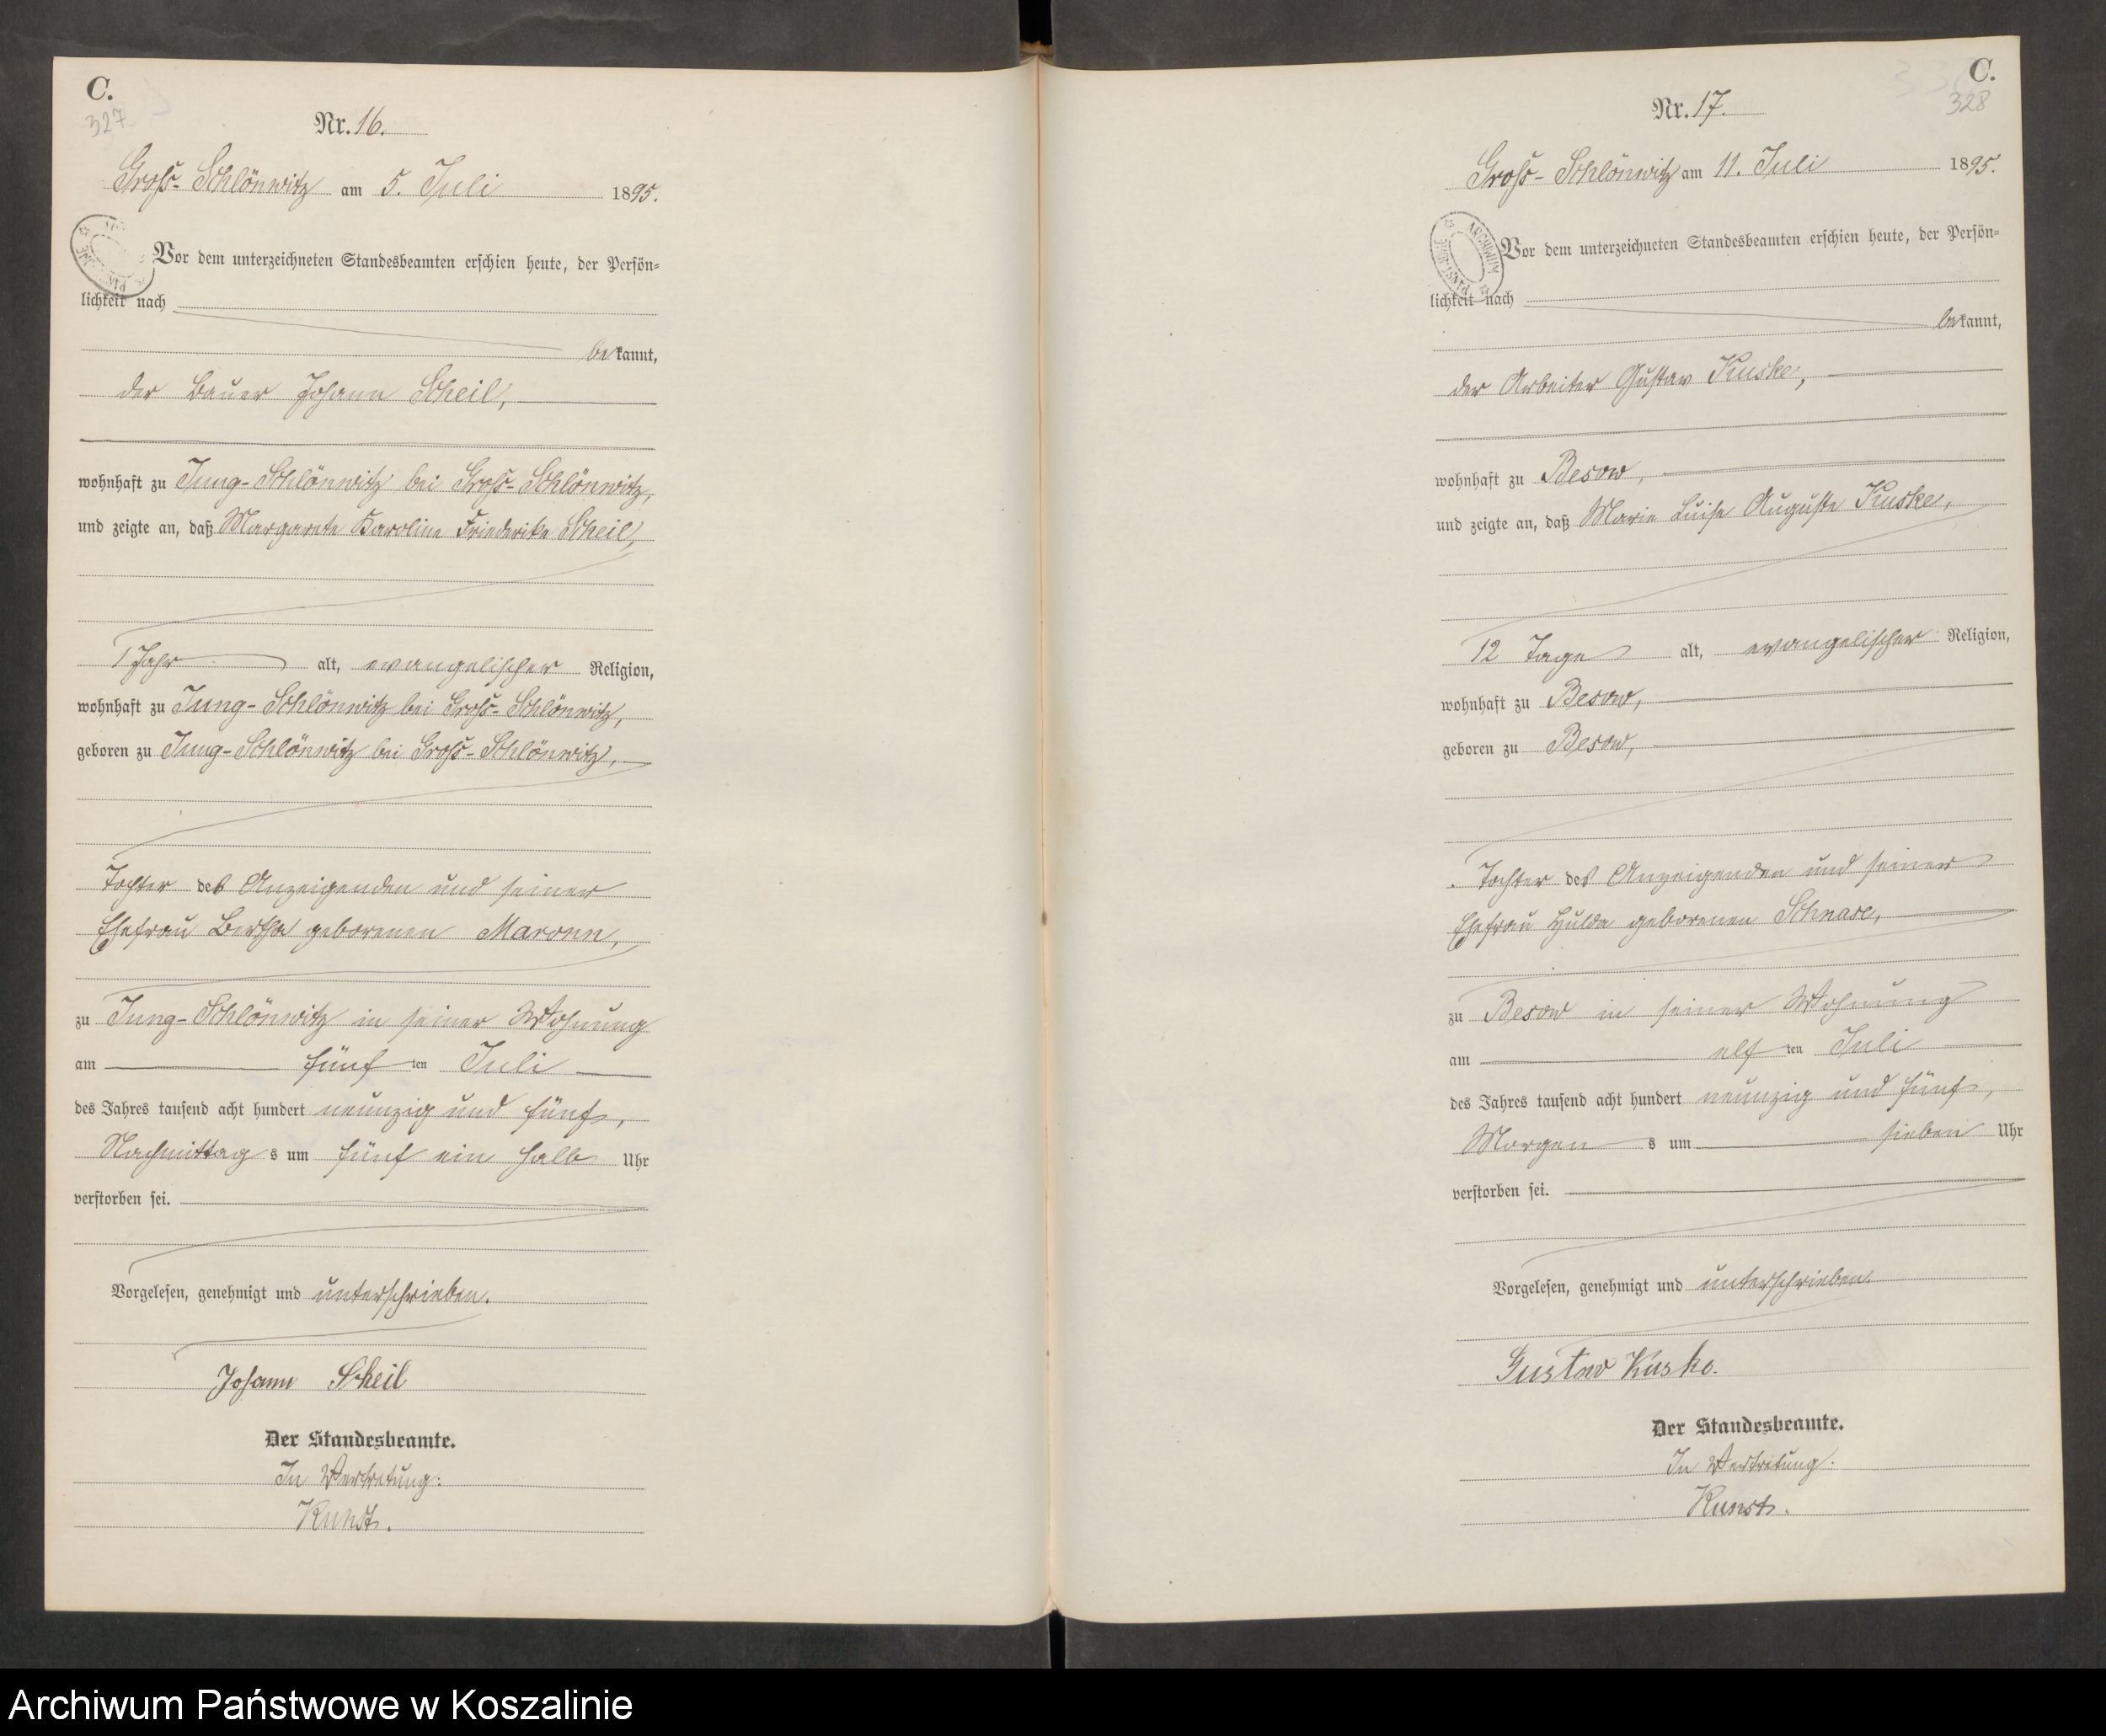 C.
327
Nr. 16.
Groß-Schlönwitz am 5. Juli 1895.
Vor dem unterzeichneten Standesbeamten erschien heute, der Persön-
lichkeit nach
bekannt,
der Bauer Johann Scheil,
wohnhaft zu Jung-Schlönwitz bei Groß-Schlönwitz,
und zeigte an, daß Margarete Karoline Friederike Scheil,
1 Jahr alt, evangelischer Religion,
wohnhaft zu Jung-Schlönwitz bei Groß-Schlönwitz,
geboren zu Jung-Schlönwitz bei Groß-Schlönwitz,
Tochter des Anzeigenden und seiner
Ehefrau Bertha geborenen Maronn,
zu Jung-Schlönwitz in seiner Wohnung
am fünf ten Juli
des Jahres tausend acht hundert neunzig und fünf,
Nachmittag s um fünf ein halb Uhr
verstorben sei.
Vorgelesen, genehmigt und unterschrieben.
Johann Scheil
Der Standesbeamte.
In Vertretung:
Kunst.
C.
328
Nr. 17.
Groß-Schlönwitz am 11. Juli 1895.
ARCHIWUM
Vor dem unterzeichneten Standesbeamten erschien heute, der Persön-
lichkeit nach
bekannt,
der Arbeiter Gustav Kuske,
wohnhaft zu Besow,
und zeigte an, daß Marie Luise Auguste Kuske,
12 Tage alt, evangelischer Religion,
wohnhaft zu Besow,
geboren zu Besow,
Tochter des Anzeigenden und seiner
Ehefrau Hulda geborenen Schnase,
zu Besow in seiner Wohnung
am elf ten Juli
des Jahres tausend acht hundert neunzig und fünf,
Morgen s um sieben Uhr
verstorben sei.
Vorgelesen, genehmigt und unterschrieben.
Gustav Kuske.
Der Standesbeamte.
In Vertretung:
Kunst.
Archiwum Państwowe w Koszalinie